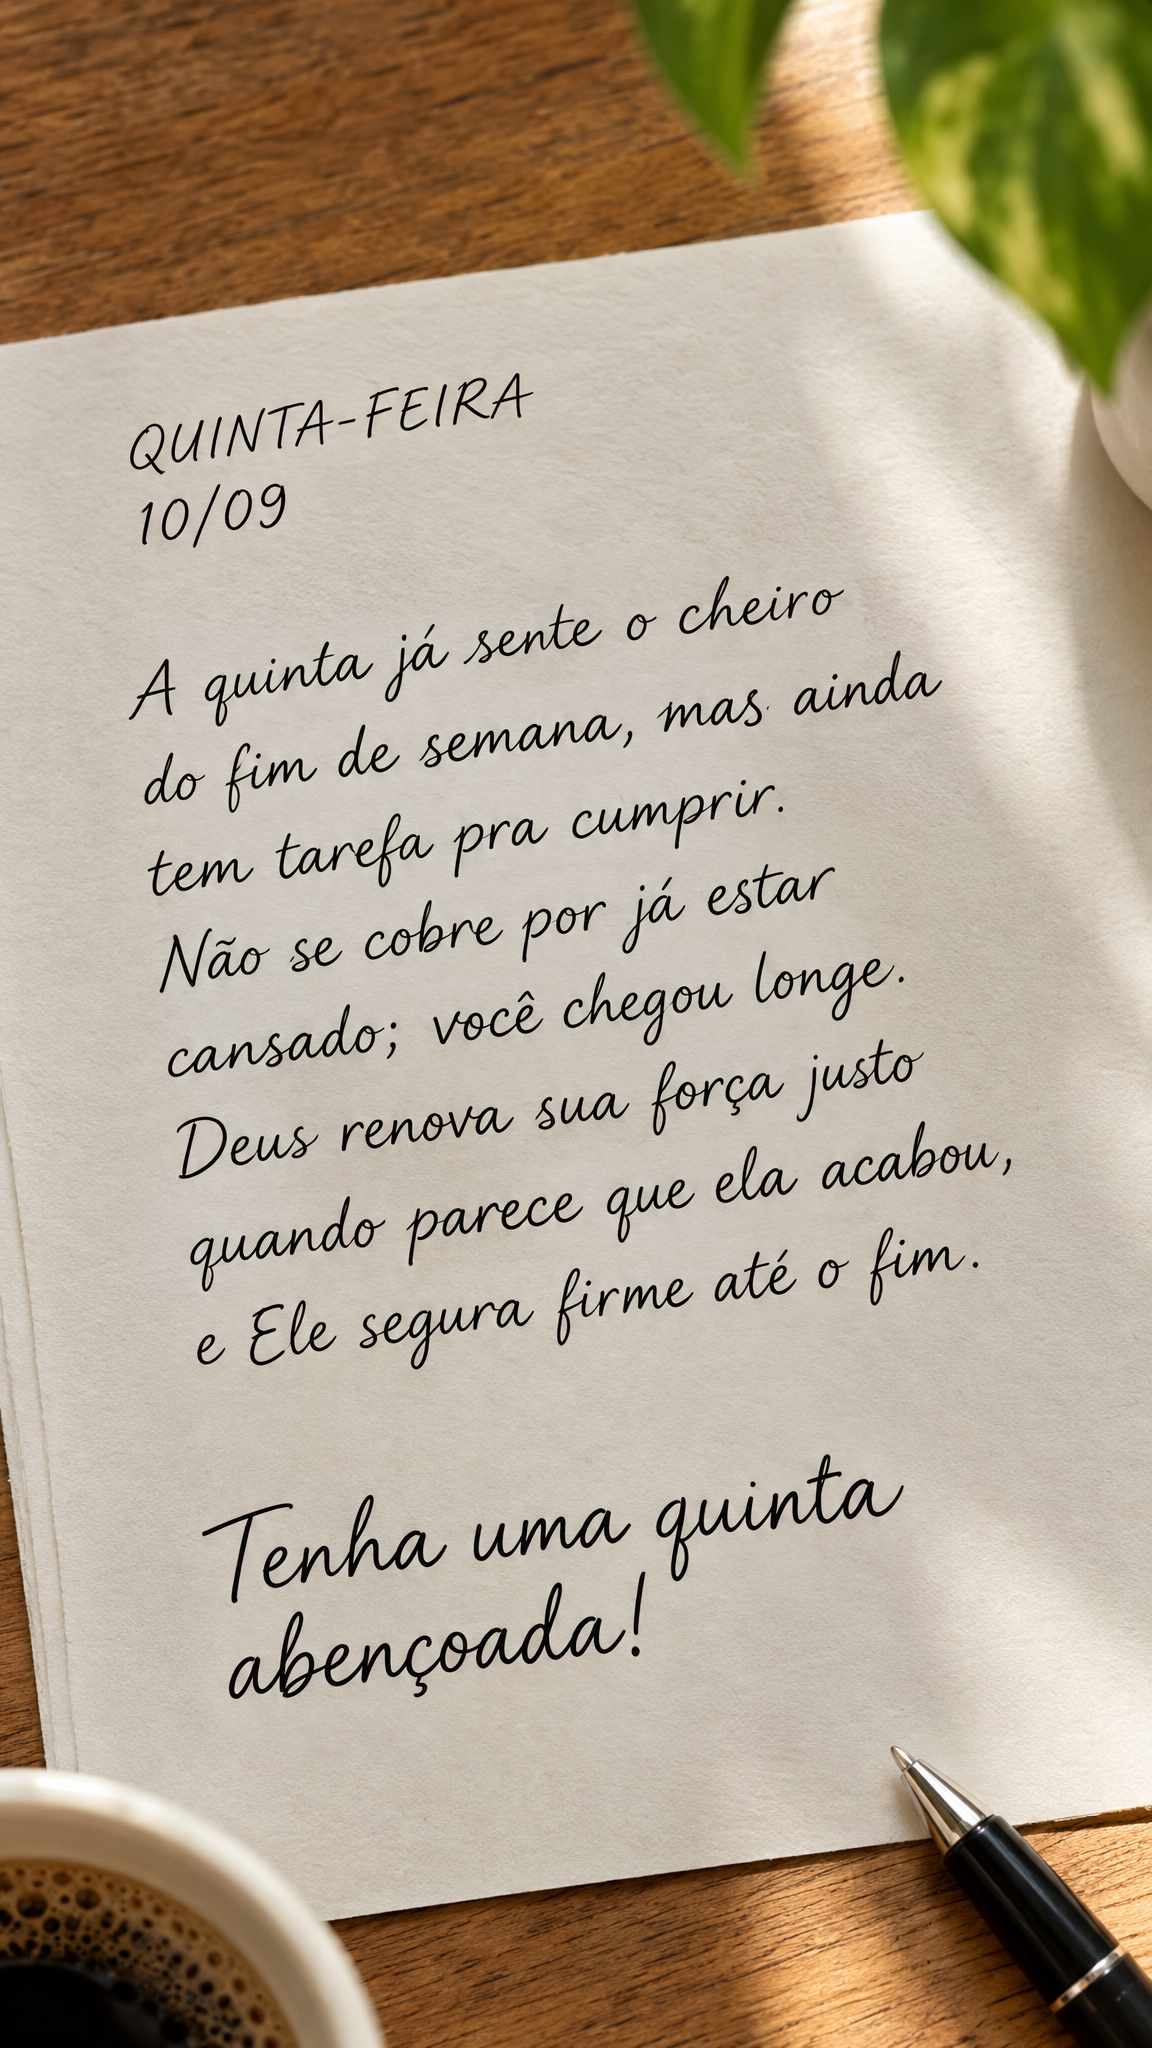 QUINTA-FEIRA
10/09
A quinta já sente o cheiro
do fim de semana, mas ainda
tem tarefa pra cumprir.
Não se cobre por já estar
cansado; você chegou longe.
Deus renova sua força justo
quando parece que ela acabou,
e Ele segura firme até o fim.
Tenha uma quinta
abençoada!